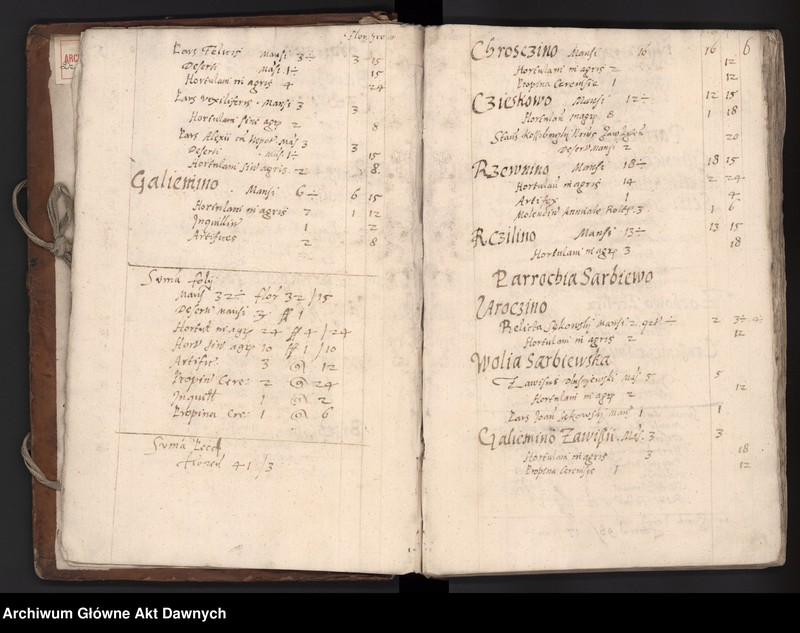 Flor. gro
Pars Felicis Mansi 3÷ 3 15
Deserti Mãsi 1÷ 15
Hortulani in agris 4 24
Pars vexiliferis Mansi 3 3
Hortulani sine agrs 2 8
Pars Alexii cũ Nepot Mãs 3 3
Deserti Mãsi 1÷ 15
Hortulani sin agris 2 8
Galiemino Mansi 6÷ 6 15
Hortulani in agris 7 1 12
Inquilin 1 2
Artifices 2 8
Sumã folÿ
Mansi 32÷ flor 32 / 15
Deserti mansi 3 ff 1
Hortul in agrs 24 ff 4 / 24
Hort sin agrs 10 ff 1 / 10
Artific 3 12
Propin Cere 2 24
Inquil 1 2
Propina Cre: 1 6
Sumã
floren 41 / 3
6
Chrosczino Mansi 16 16
Hortulani in agris 2 12
Propina Ceremsie 1 12
Czieskowo Mansi 12÷ 12 15
Hortulan in agrs 8 1 18
20
Desert Mansi 2
Rzewnino Mansi 18÷ 18 15
Hortulani in agris 14 2 24
Artifex 1 4
Molendin Annuale Rott 3 1 6
Rczilino Mansi 13÷ 13 15
Hortulani in agrs 3 18
Parrochia Sarbiewo
Uroczino
Relicta Mansi 2 2 3÷
Hortulani in agris 2 12
Wolia Sarbiewska
Mãs 5 5
Hortulani in agrs 2 12
Pars Joan Mans 1 1
Galiemino Zawissii Mãs: 3 3
Hortulani in agris 3 18
Propina Ceremsie 1 12
Archiwum Główne Akt Dawnych